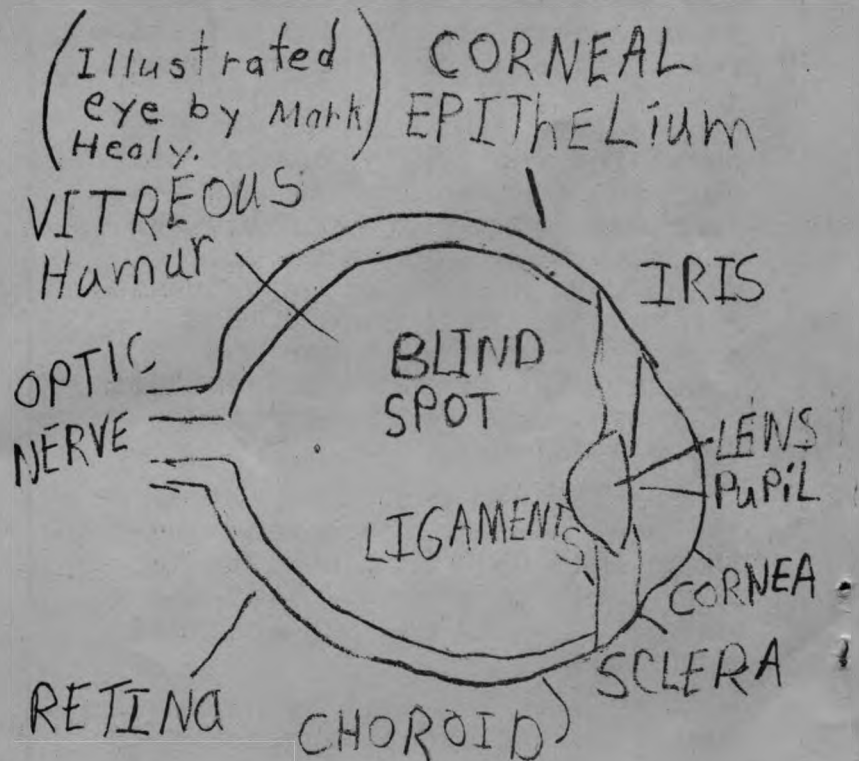 (Illustrated
eye by Mark
Healy.)
CORNEAL
EPIThELium
VITREOUS
Humur
IRIS
OPTIC
NERVE
BLIND
SPOT
LENS
PUPiL
LIGAMENTS
CORNEA
SCLERA
RETINa
CHOROID